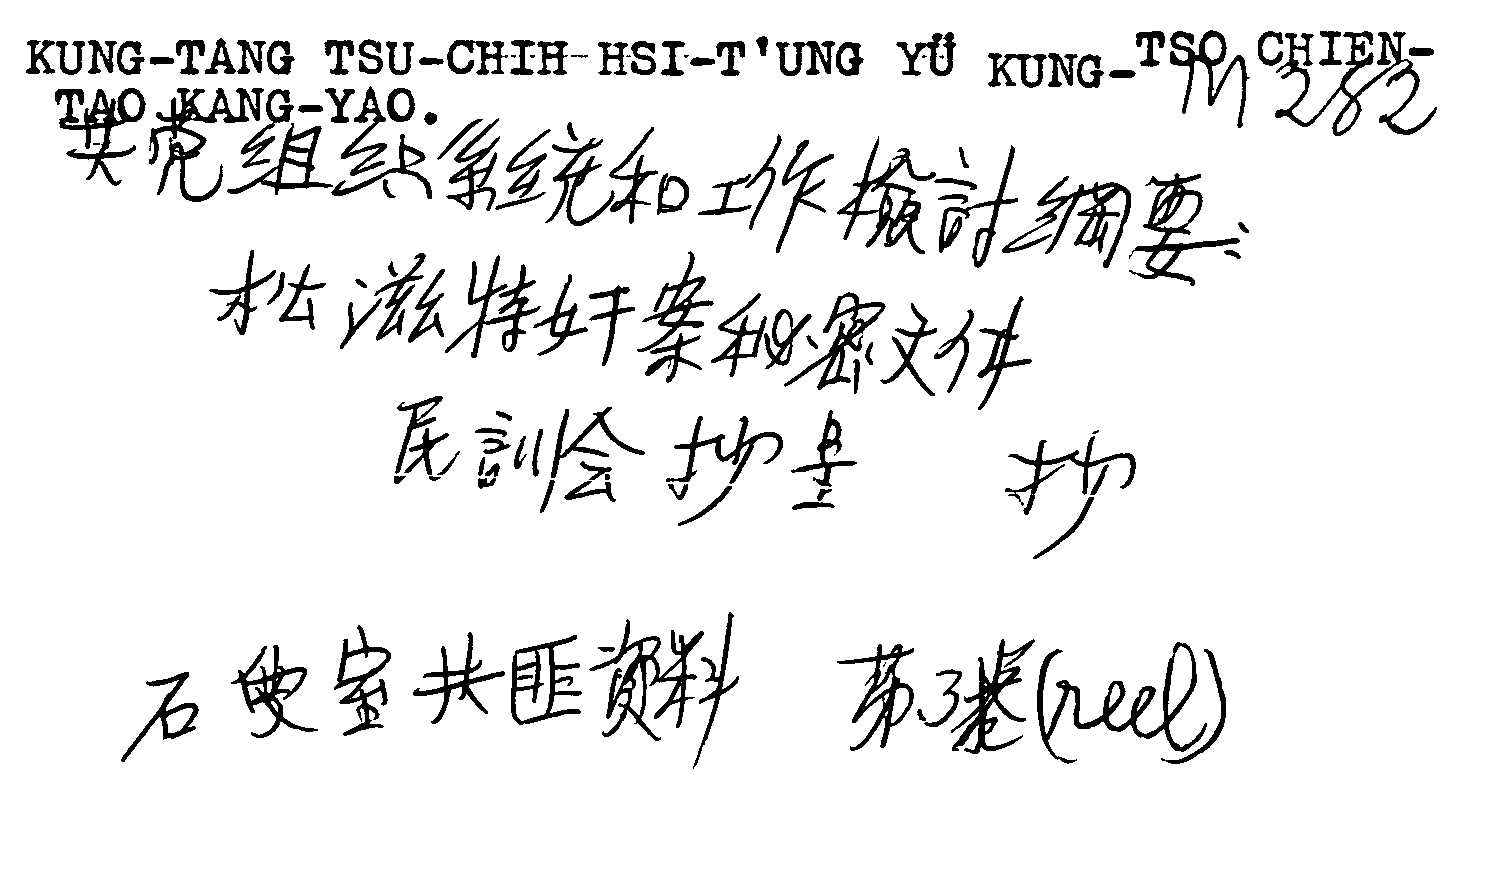 KUNG-TANG TSU-CHIH HSI-T'UNG YÜ KUNG-TSO CHIEN-
TAO KANG-YAO.
M 282
共党組织系統和工作檢討綱要:
松滋特奸案秘密文件
民訓会抄呈 抄
石叟室共匪資料 第3卷(reel)